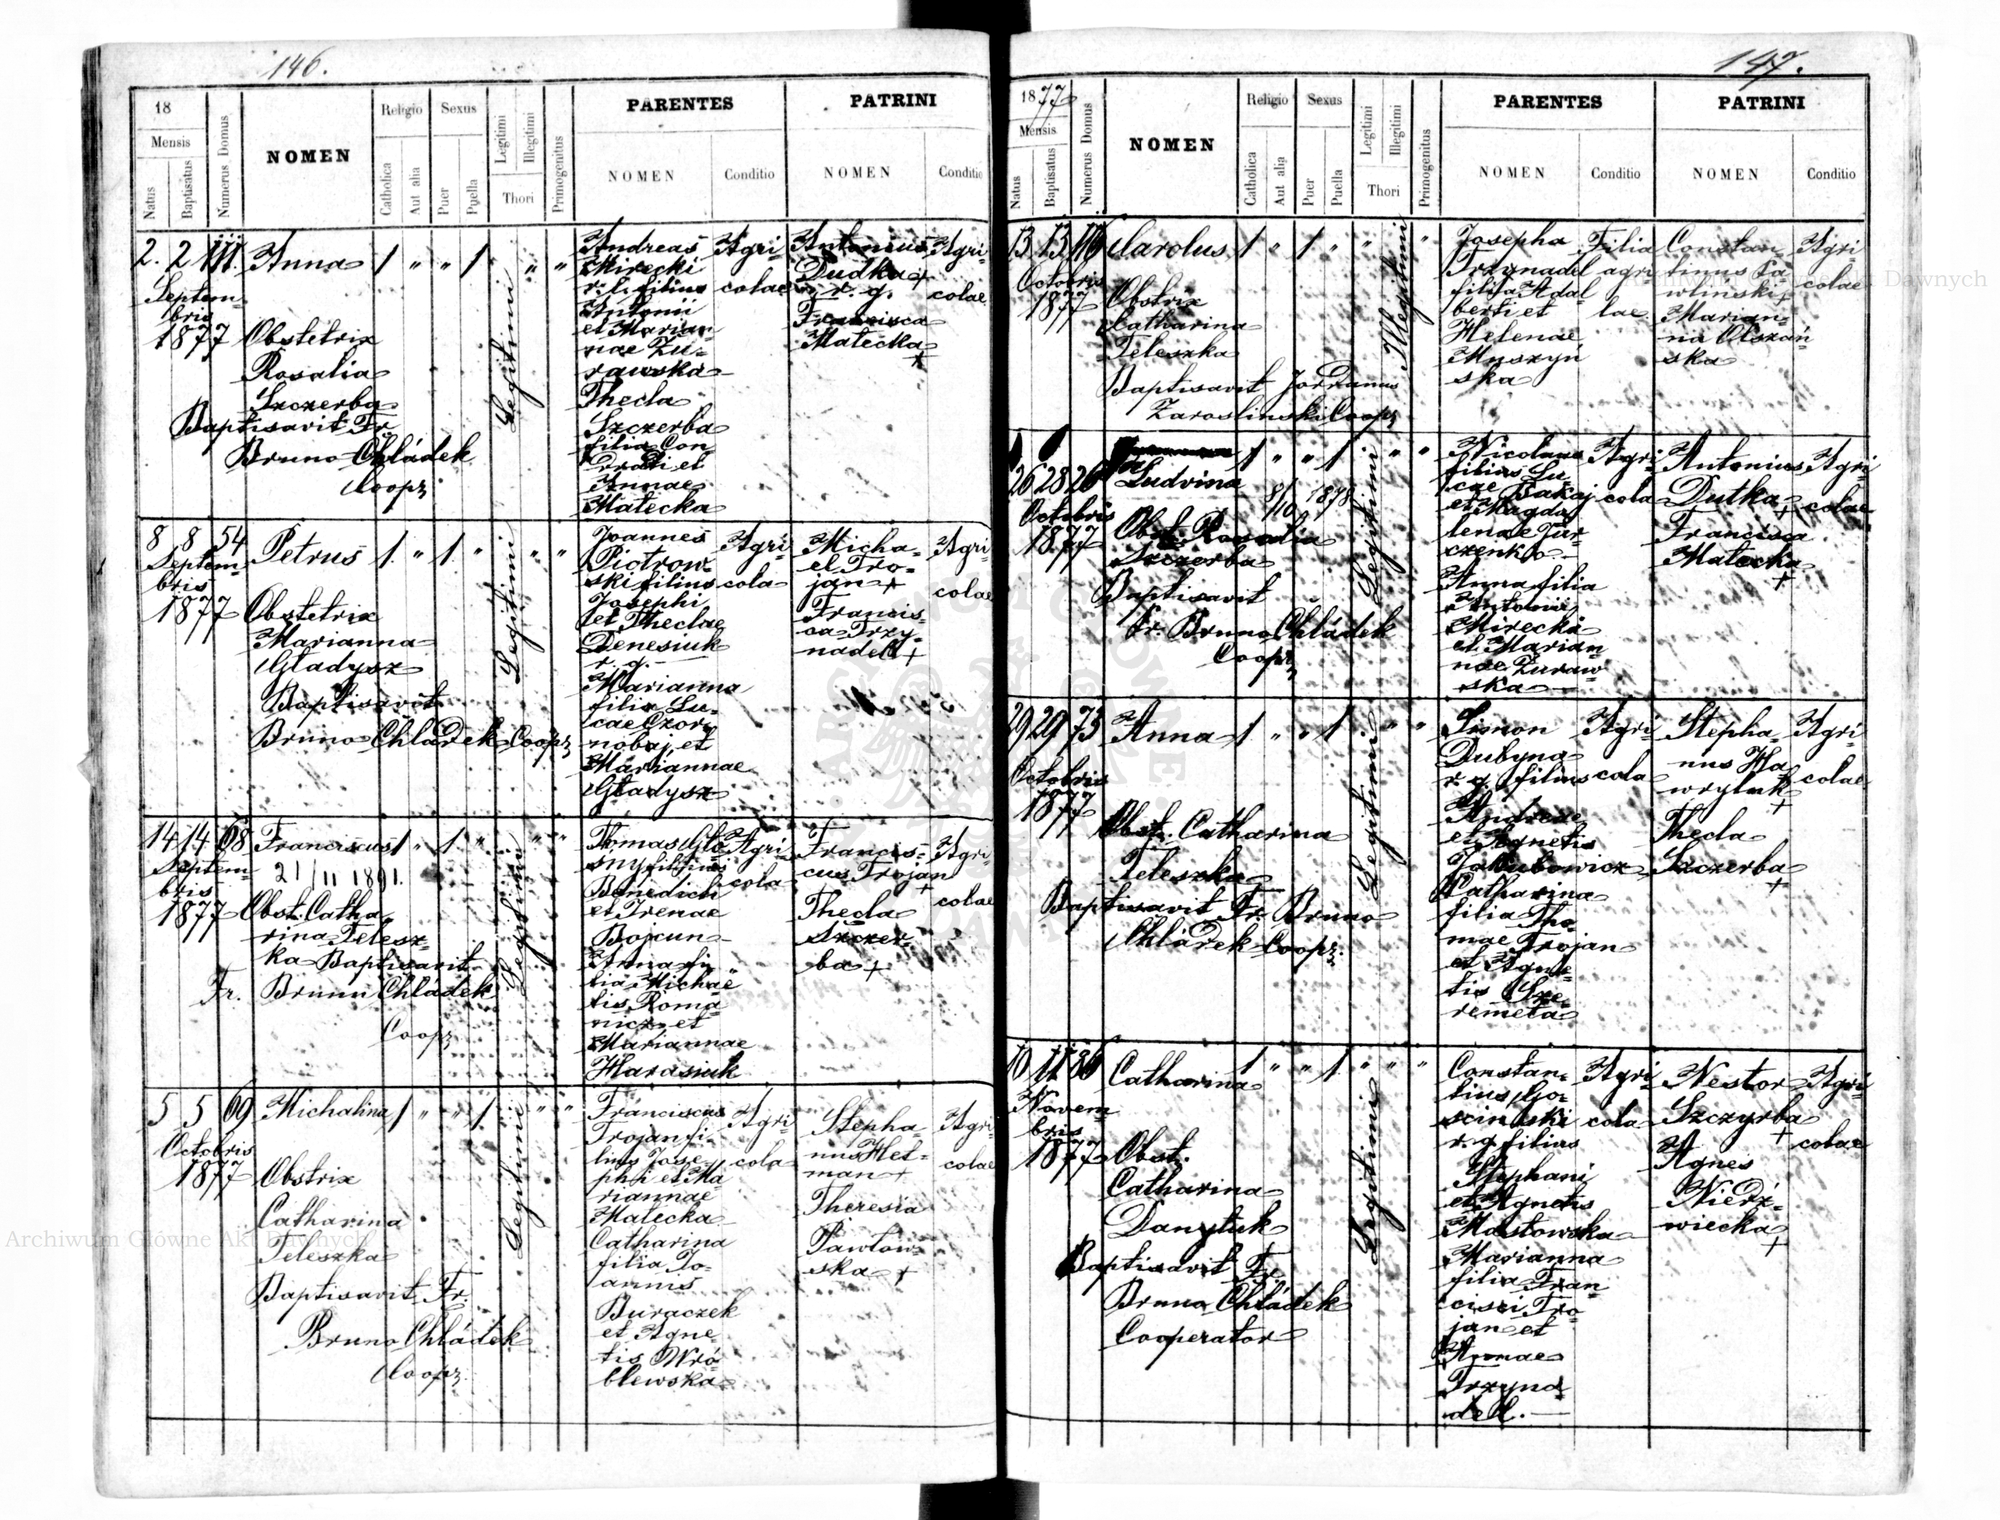 146.
18
Mensis
Natus
Baptisatus
Numerus Domus
NOMEN
Religio
Catholica
Aut alia
Sexus
Puer
Puella
Legitimi
Illegitimi
Thori
Primogenitus
PARENTES
NOMEN
Conditio
PATRINI
NOMEN
Conditio
2. 2 111. Anna 1 " " 1 " "
Septem-
bris
1877
Obstetrix
Rosalia
Szczerba
Baptisavit Fr.
Bruno Chládek
Coopr
Legitimi
Andreas
Mirecki
r. l. filius
Antonii
et Marian-
nae Żu-
rawska
Thecla
Szczerba
filia Con-
radi et
Annae
Małecka
Agri-
colae
Antonius
Dudka +
r. g.
Francisca
Małecka
+
Agri-
colae
8 8 54 Petrus 1. " 1. " " "
Septem-
bris
1877
Obstetrix
Marianna
Gładysz
Baptisavit
Bruno Chládek Coopr
Legitimi
Joannes
Piotrow-
ski filius
Josephi
et Theclae
Denesiuk
r. g.
Marianna
filia Lu-
cae Czor-
nobaj et
Mariannae
Gładysz
Agri-
cola
Micha-
el Tro-
jan +
Francis-
ca Trzy-
nadel +
Agri-
colae
14 14 68 Franciscus 1 " 1 " " "
Septem-
bris
1877
21/11 1891.
Obst. Catha-
rina Telesz-
ka Baptisavit
Fr. Bruno Chládek
Coopr
Legitimi
Thomas Gło-
sny filius
Benedicti
et Irenae
Bokun
Anna fi-
lia Michae-
lis Roma-
nicz et
Mariannae
Harasiuk
Agri-
cola
Francis-
cus Trojan
+
Thecla
Szczer-
ba +
Agri-
colae
5 5 69 Michalina 1 " " 1. " "
Octobris
1877
Obstrix
Catharina
Teleszka
Baptisavit Fr.
Bruno Chládek
Coopr.
Legitimi
Franciscus
Trojan fi-
lius Jose-
phi et Ma-
riannae
Małecka
Catharina
filia Jo-
annis
Buraczek
et Agne-
tis Wró-
blewska
Agri-
cola
Stepha-
nus Het-
man +
Theresia
Pawłow-
ska +
Agri-
colae
147.
1877
Mensis
Natus
Baptisatus
Numerus Domus
NOMEN
Religio
Catholica
Aut alia
Sexus
Puer
Puella
Legitimi
Illegitimi
Thori
Primogenitus
PARENTES
NOMEN
Conditio
PATRINI
NOMEN
Conditio
13 13 116 Carolus 1 " 1 " " "
Octobris
1877
Obstrix
Catharina
Teleszka
Baptisavit Jordanus
Zaroslinski Coopr
Illegitimi
Josepha
Trzynadel
filia Adal
berti et
Helenae
Muszyń
ska
Filia
agri
lae
Constan-
tinus Pa-
wliński +
Marian-
na Olszań-
ska
Agri-
colae
26 28 26 Ludvina 1 " " 1 " "
Octobris
1877
8/10 1878
Obst. Rosalia
Szczerba
Baptisavit
Fr. Bruno Chládek
Coopr
Legitimi
Nicolaus
filius Lu-
cae Bakaj
et Magda
lenae Jur-
czenko
Anna filia
Antonii
Mirecki
et Marian-
nae Żuraw-
ska
Agri-
cola
Antonius
Dutka +
Francisca
Małecka
+
Agri-
colae
29 29 73 Anna 1 " " 1 " "
Octobris
1877
Obst. Catharina
Teleszka
Baptisavit Fr. Bruno
Chládek Coopr.
Legitimi
Simon
Dubyna
r. g. filius
Andreae
et Agnetis
Jakubowicz
Catharina
filia Tho-
mae Trojan
et Agne-
tis Sze-
remeta
Agri-
cola
Stepha-
nus Ha-
wryluk
+
Thecla
Szczerba
+
Agri-
colae
10 11 86 Catharina 1 " " 1. " "
Novem-
bris
1877
Obst.
Catharina
Danyluk
Baptisavit Fr.
Bruno Chládek
Cooperator
Legitimi
Constan-
tius Go-
sciński
r. g. filius
Stephani
et Agnetis
Masłowska
Marianna
filia Fran-
cisci Tro-
jan et
Annae
Trzyna-
del.
Agri-
cola
Nestor
Szczyrba
+
Agnes
Niedź-
wiecka
+
Agri-
colae
Archiwum Główne Akt Dawnych
Archiwum Główne Akt Dawnych